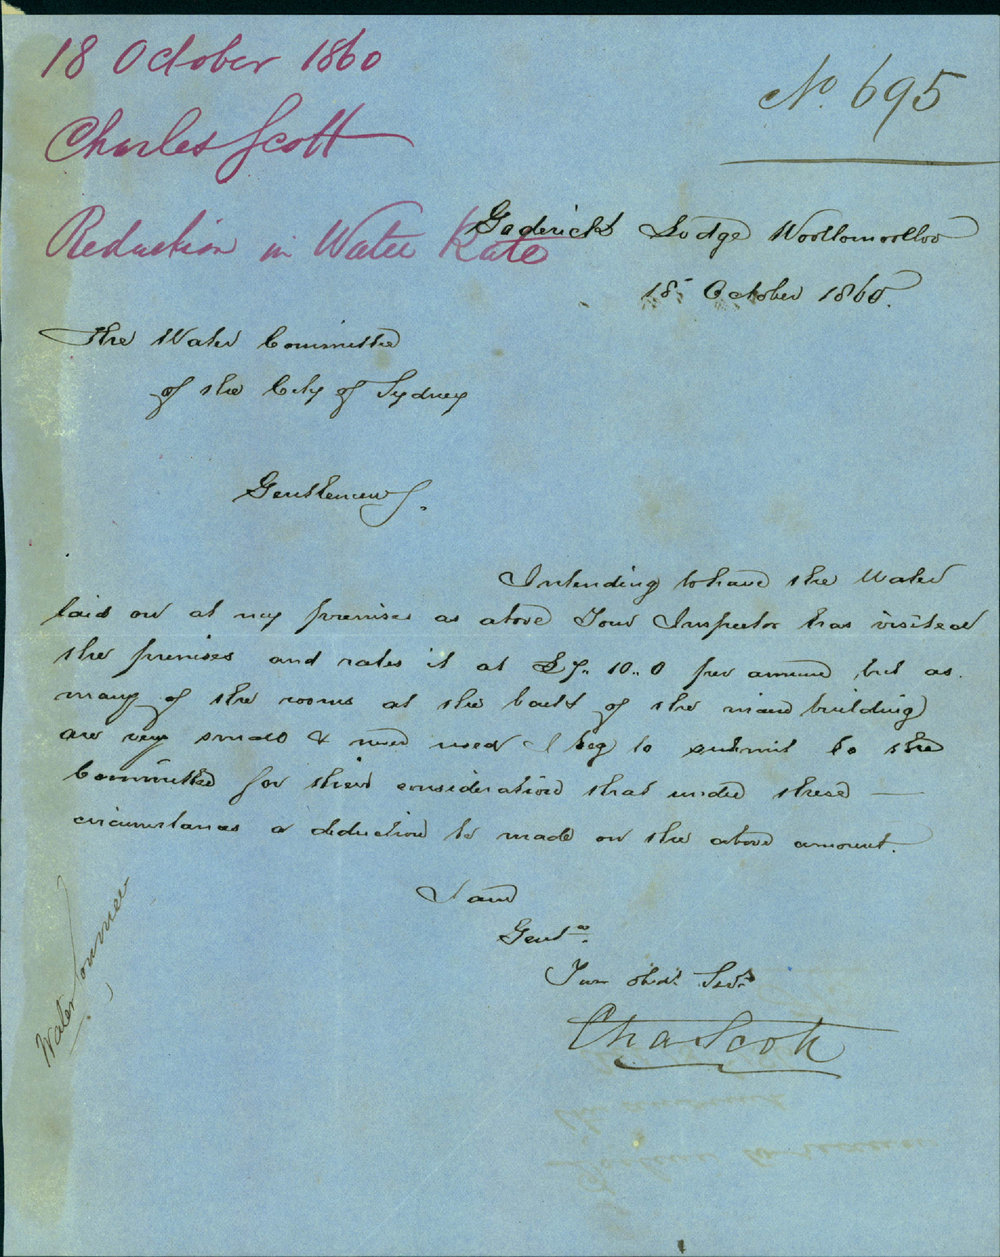 18 October 1860
Charles Scott
Reduction in Water Rate
No. 695
Goderich Lodge Woolloomooloo
18 October 1860.
The Water Committee
of the City of Sydney
Gentlemen,
Intending to have the Water
laid on at my premises as above Your Inspector has visited
the premises and rates it at £7.. 10.. 0 per annum but as
many of the rooms at the back of the main building
are very small & not used I beg to submit to the
Committee for their consideration that under these —
circumstances a deduction be made on the above amount.
I am
Gentn.
Your obdt. Servt.
Chas Scott
Water